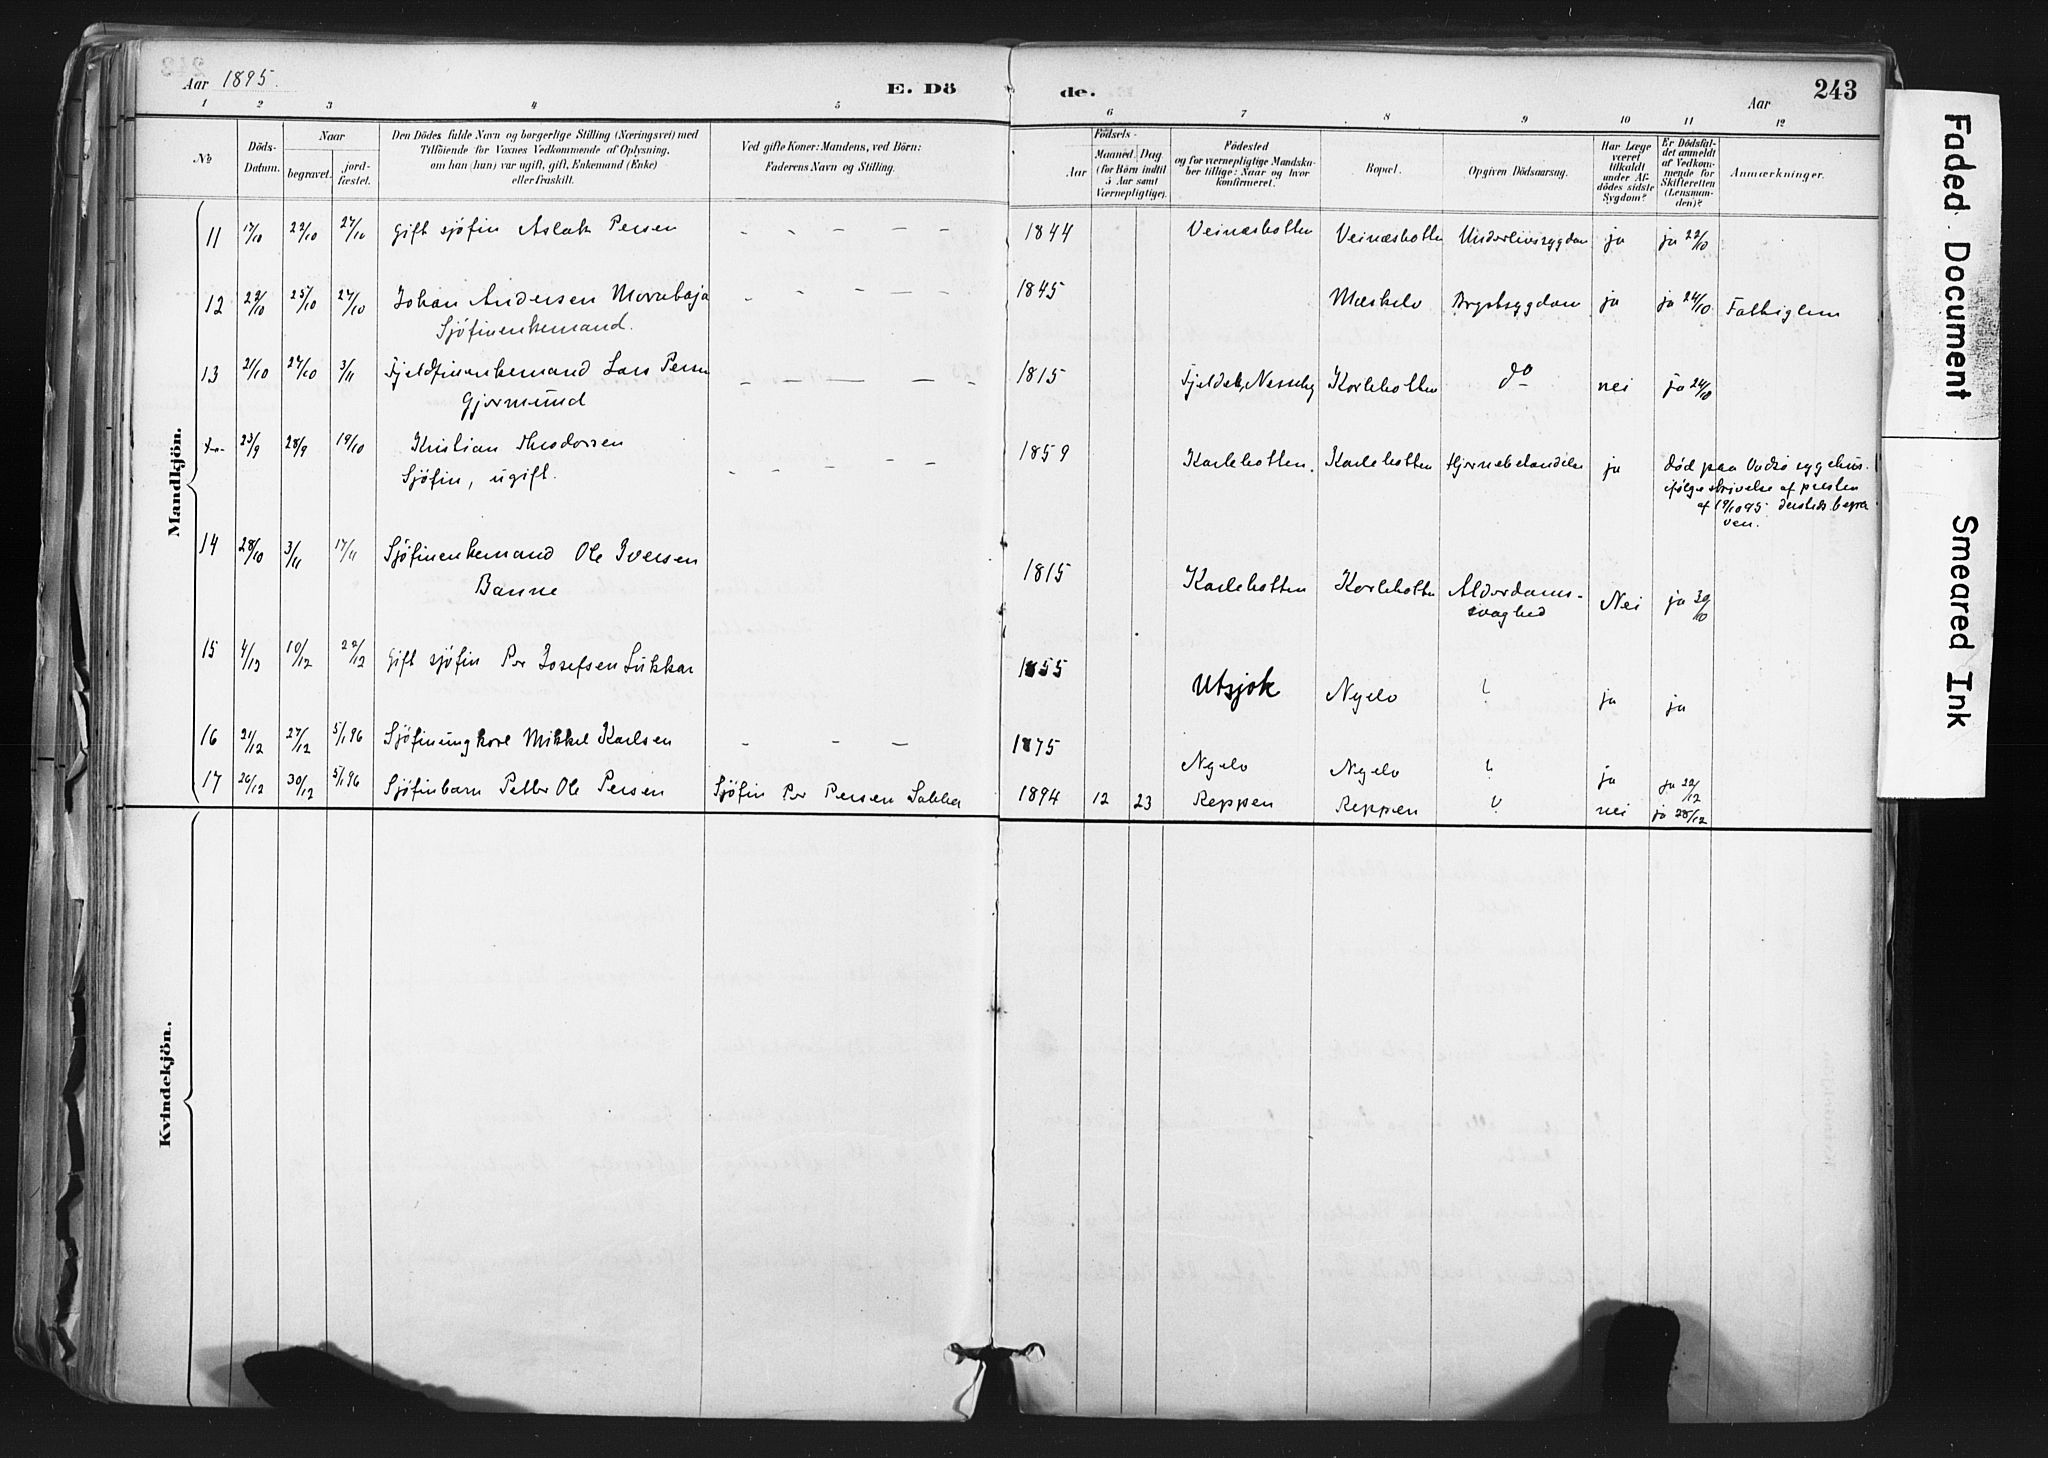 243
Aar 1895.
E. Dö
de.
Aar
1 2 3 4 5 6 7 8 9 10 11 12
No
Döds-
Datum.
Naar
begravet.
jord-
fæstet.
Den Dödes fulde Navn og borgerlige Stilling (Næringsvei) med
Tilföiende for Voxnes Vedkommende af Oplysning,
om han (hun) var ugift, gift, Enkemand (Enke)
eller fraskilt.
Ved gifte Koner: Mandens, ved Börn:
Faderens Navn og Stilling.
Födsels-
Aar
Maaned.
Dag
(for Börn indtil
5 Aar samt
Værnepligtige).
Födested
og for værnepligtige Mandska-
ber tillige: Naar og hvor
konfirmeret.
Bopæl.
Opgiven Dödsaarsag.
Har Læge
været
tilkaldt
under Af-
dödes sidste
Sygdom?
Er Dödsfal-
det anmeldt
af Vedkom-
mende for
Skifteretten
(Lensman-
den)?
Anmærkninger.
Mandkjön.
11 17/10 22/10 27/10 Gift sjöfin Aslak Persen - - - - - 1844 Veinæsbotten Veinæsbotten Underlivssygdom ja ja 22/10
12 22/10 25/10 27/10 Johan Andersen Morrebaja - - - - - 1845 Mæskelv Brystsygdom ja ja 24/10 Fattiglem
Sjöfinenkemand.
13 21/10 27/10 3/11 Fjeldfinenkemand Lars Persen - - - - - 1815 Fjeldet, Nesseby Karlebotten do nei ja 24/10
Gjormund
23/9 28/9 19/10 Kristian Thodorsen - - - - - 1859 Karlebotten. Karlebotten Hjernebetændelse ja död paa Vadsö sygehus.
Sjöfin, ugift.
ifölge skrivelse af presten
af 19/10 95 dersteds begra-
ven.
14 28/10 3/11 17/11 Sjöfinenkemand Ole Iversen 1815 Karlebotten Karlebotten Alderdoms- Nei ja 30/10
Banne
svaghed
15 4/12 10/12 22/12 Gift sjöfin Per Josefsen Lukkar 1855 Utsjok Nyelv ? ja ja
16 21/12 27/12 5/1 96 Sjöfinungkarl Mikkel Karlsen - - - 1875 Nyelv Nyelv ? ja ja 22/12
17 26/12 30/12 5/1 96 Sjöfinbarn Petter Ole Persen Sjöfin Per Persen Sabba 1894 12 23 Reppen Reppen ? nei ja 28/12
Kvindekjön.
Faded Document
Smeared Ink